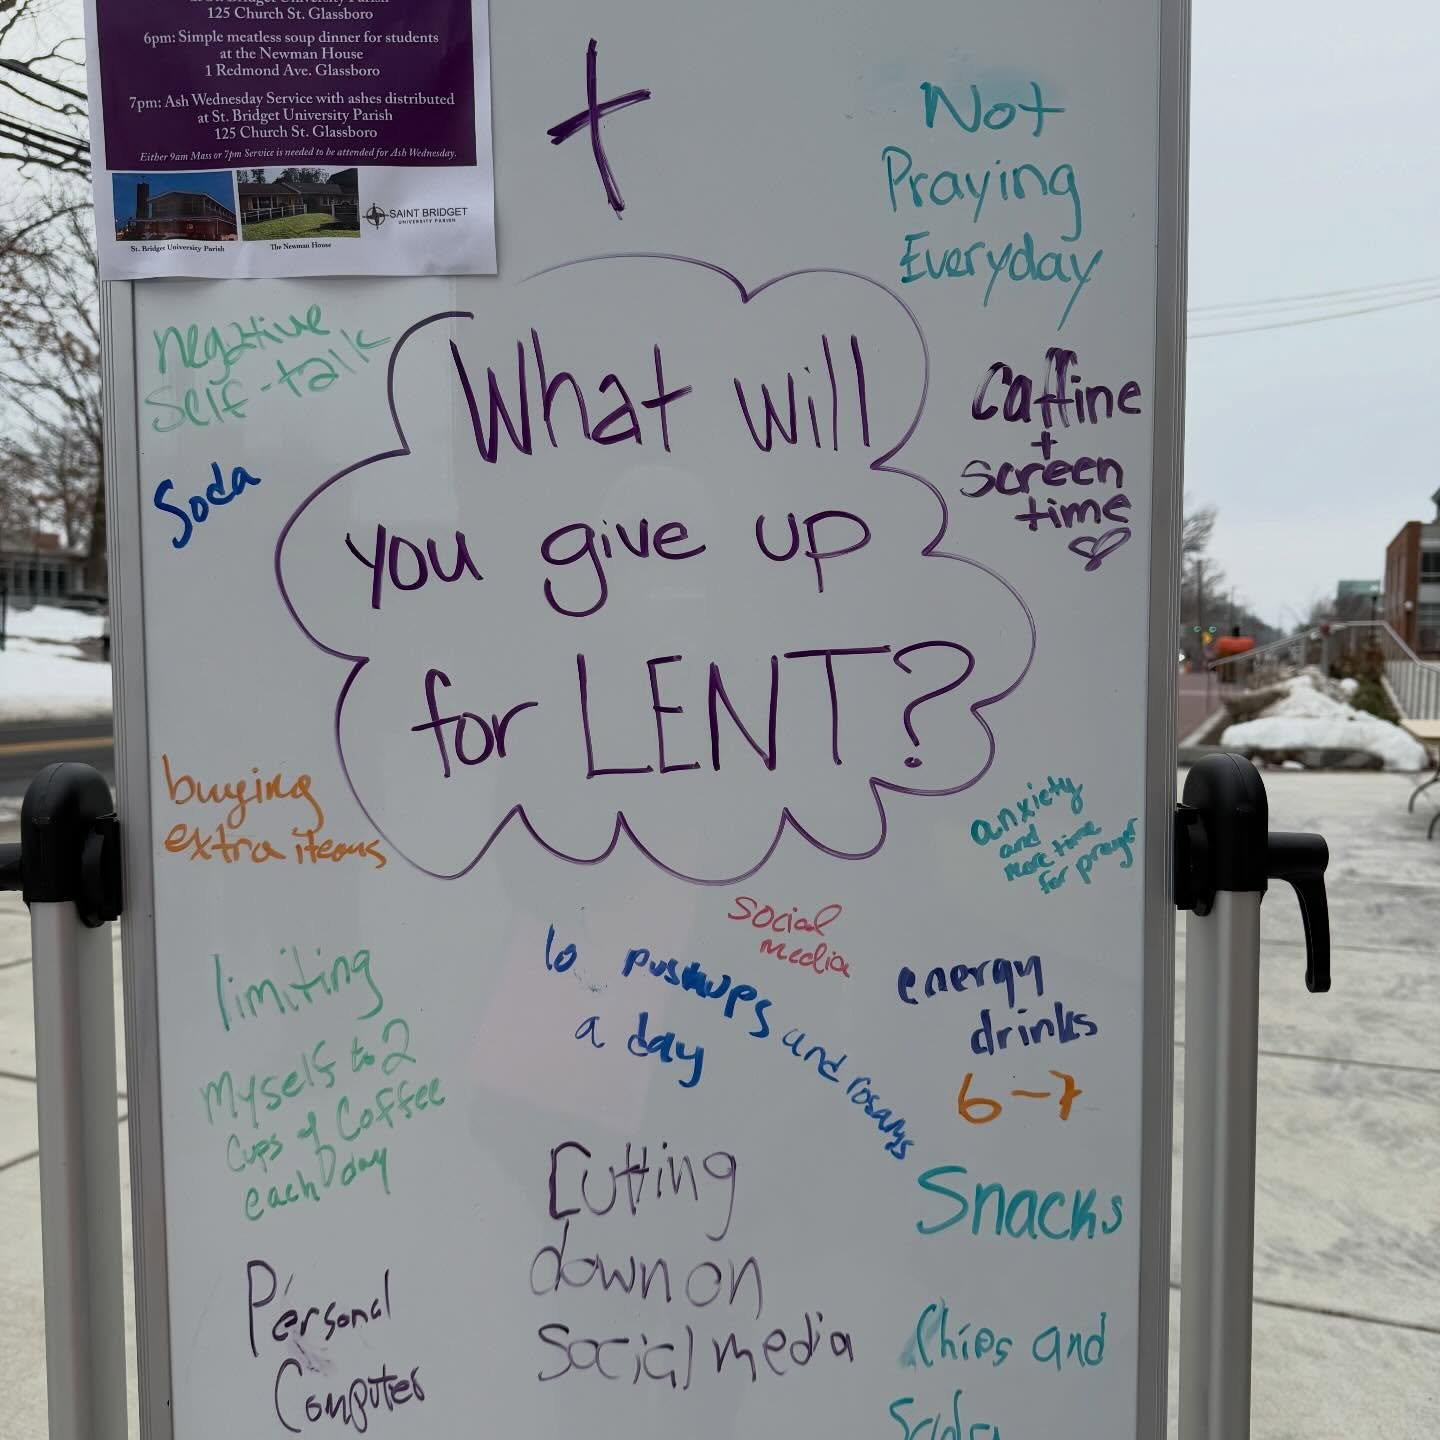 125 Church St. Glassboro
6pm: Simple meatless soup dinner for students
at the Newman House
1 Redmond Ave. Glassboro
7pm: Ash Wednesday Service with ashes distributed
at St. Bridget University Parish
125 Church St. Glassboro
Either 9am Mass or 7pm Service is needed to be attended for Ash Wednesday.
St. Bridget University Parish
The Newman House
SAINT BRIDGET
UNIVERSITY PARISH
Not
Praying
Everyday
negative
self-talk
Soda
What will
you give up
for LENT?
Caffine
+
screen
time
buying
extra items
anxiety
and
more time
for prayer
social
media
limiting
myself to 2
cups of coffee
each day
10 pushups and rosarys
a day
energy
drinks
6-7
Snacks
Cutting
down on
social media
Personal
Computer
Chips and